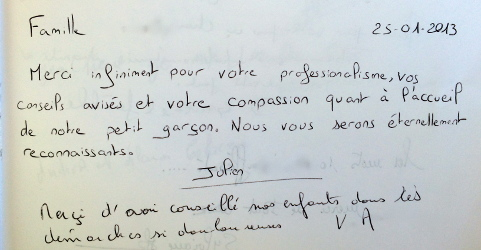 Famille 25-01-2013
Merci infiniment pour votre professionalisme, vos
conseils avisés et votre compassion quant à l'accueil
de notre petit garçon. Nous vous serons éternellement
reconnaissants.
Julien
Merci d'avoir conseillé nos enfants dans les
démarches si douloureuses V A